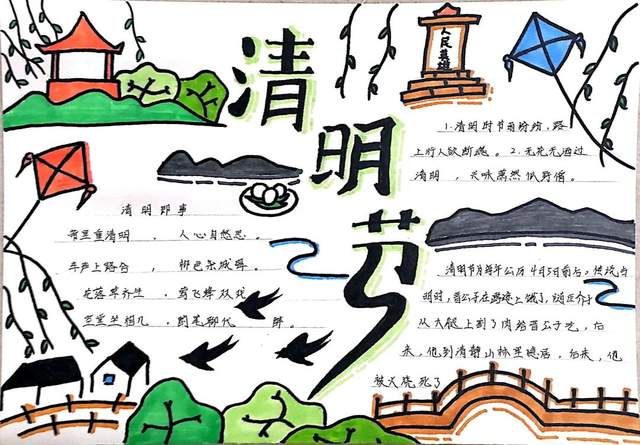 清明节
人民英雄
1.清明时节雨纷纷,路
上行人欲断魂。2.无花无酒过
清明,兴味萧然似野僧。
清明即事
帝里重清明,人心自愁思。
车声上路合,柳色东城翠。
花落草齐生,莺飞蝶双戏
空堂坐相忆,酌茗聊代醉。
清明节为每年公历4月5日前后。传说
明时,晋公子在路途上饿了,随臣介子
从大腿上割了肉给晋公子吃,后
来,他到清静山林里隐居,后来,他
被火烧死了